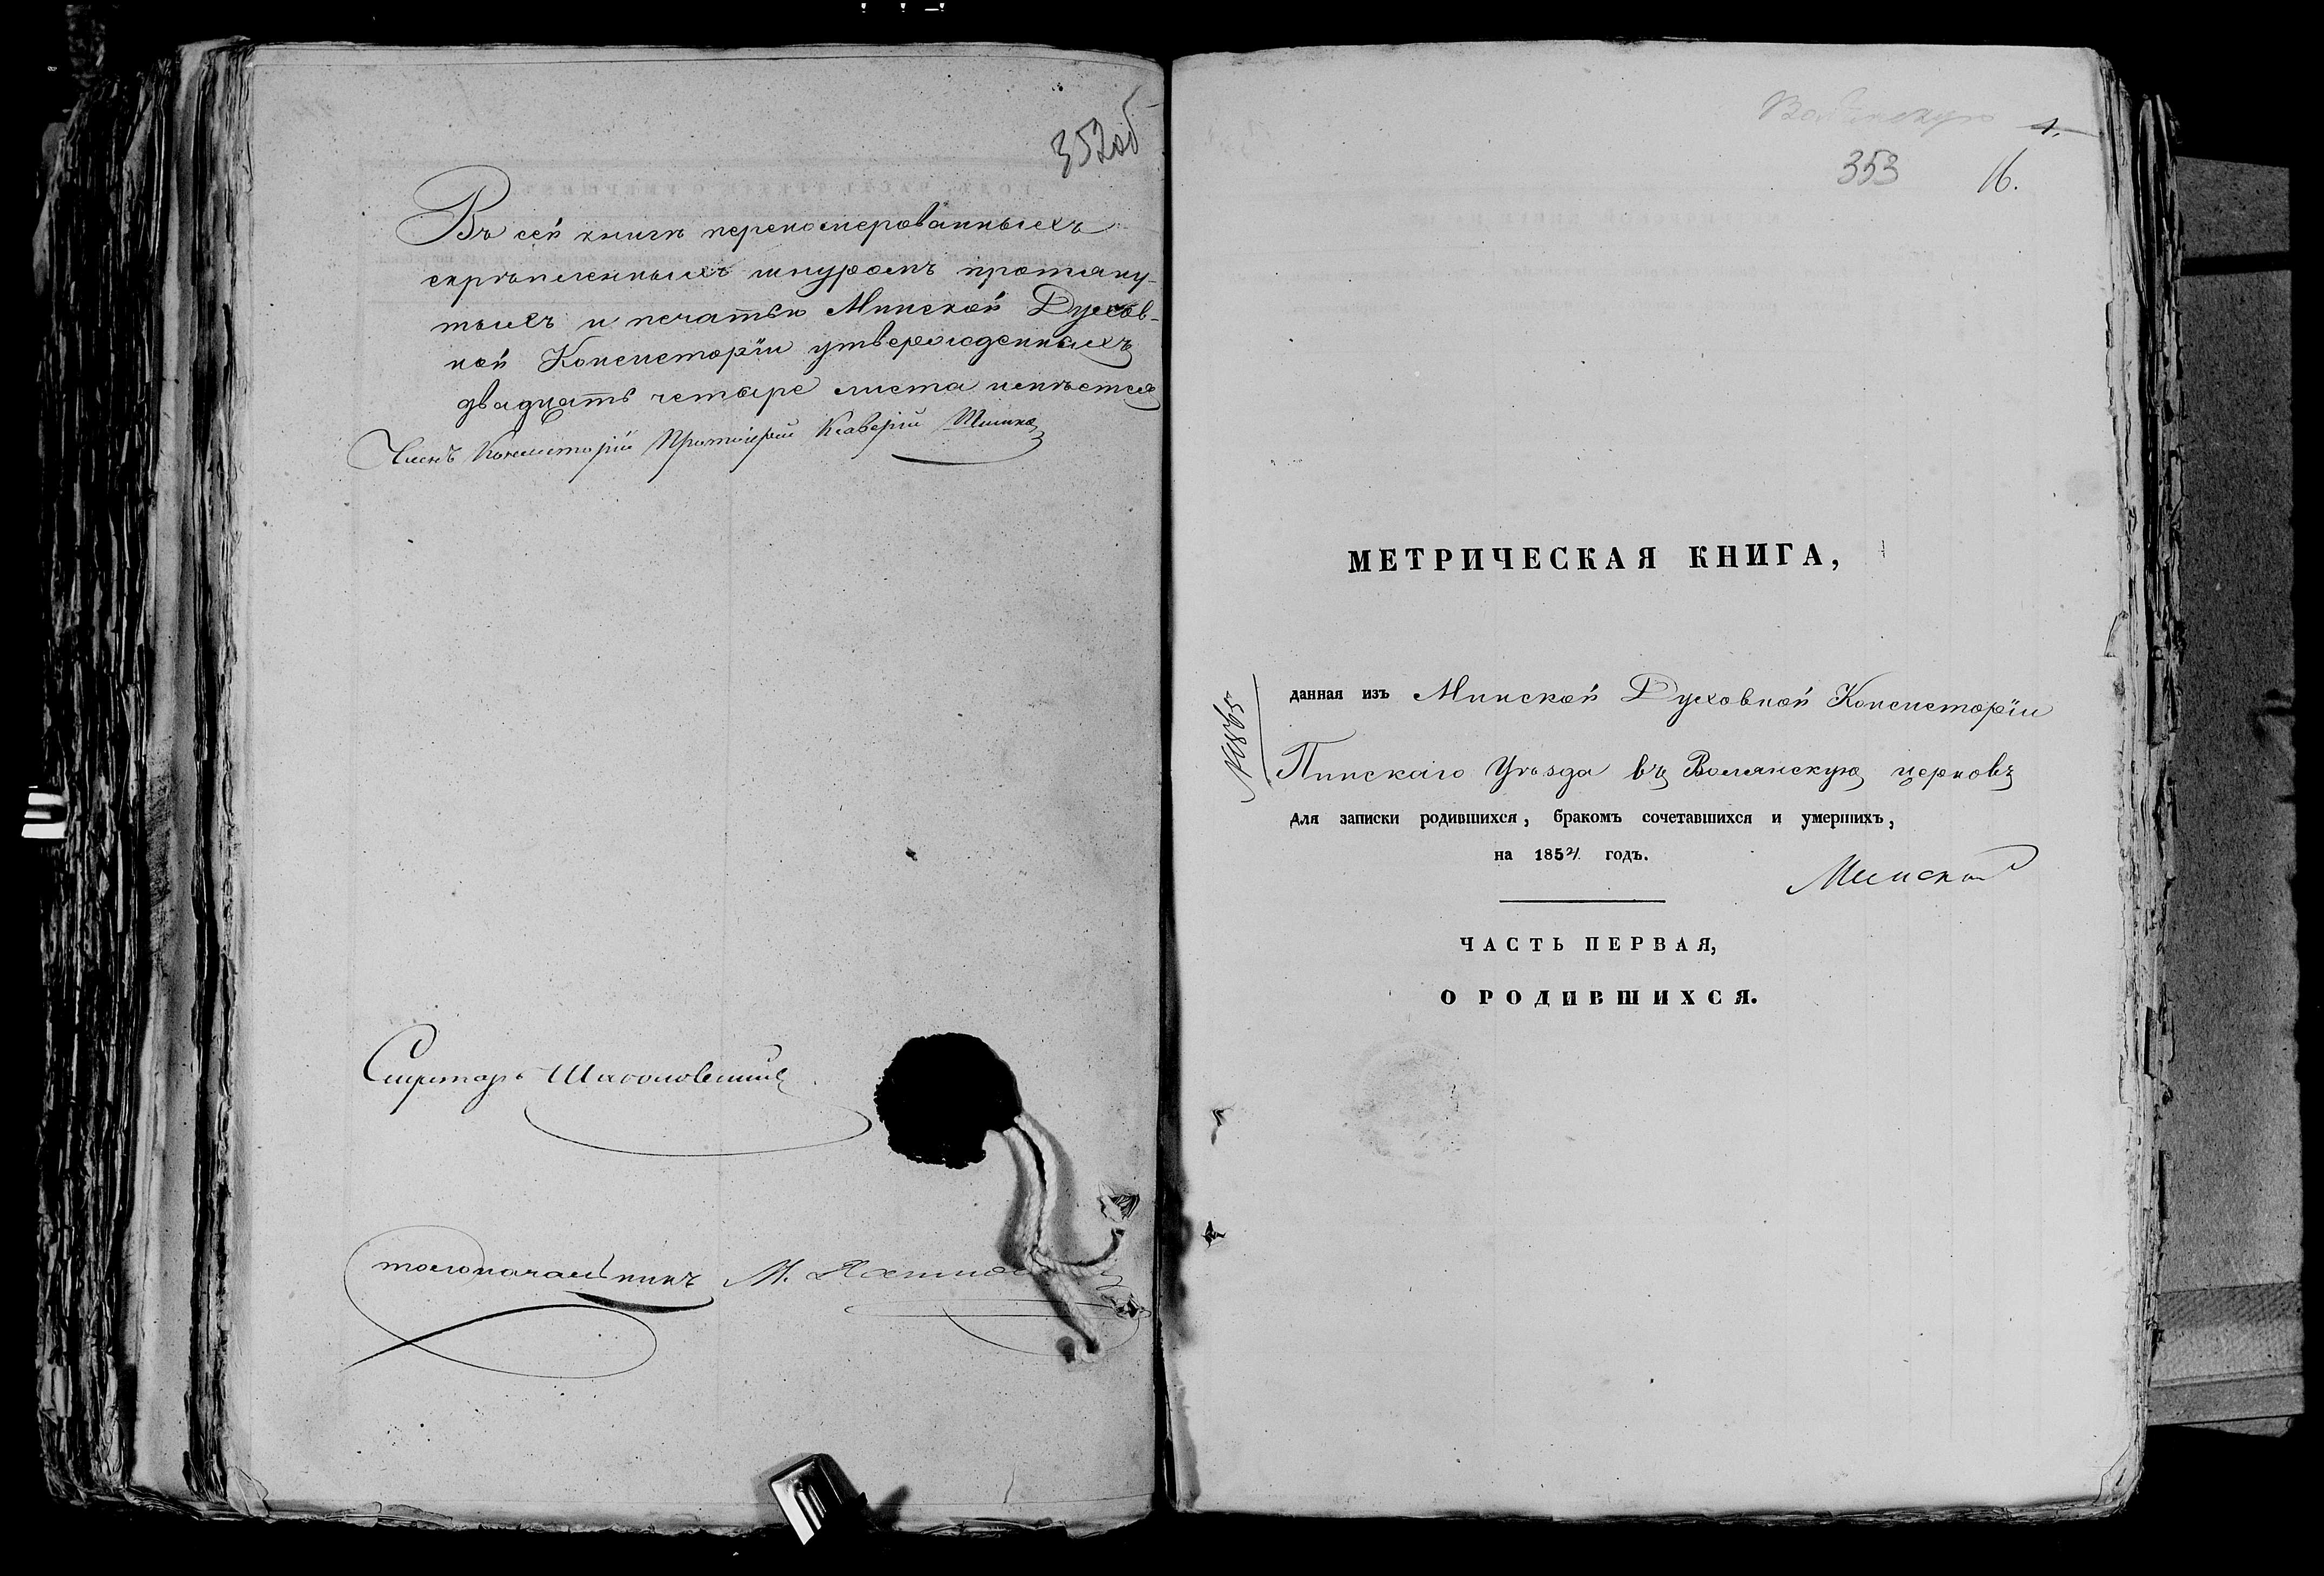 352об
Въ сей книгѣ переномерованныхъ
скрѣпленныхъ шнуромъ протяну-
тыхъ и печатью Минской Духов-
ной Консисторіи утвержденныхъ
двадцать четыре листа имѣется
Членъ Консисторіи Протоіерей
Секретарь
столоначальникъ М.
1.
353 16.
МЕТРИЧЕСКАЯ КНИГА,
данная изъ Минской Духовной Консисторіи
Пинскаго Уѣзда въ Волянскую церковъ
для записки родившихся, бракомъ сочетавшихся и умершихъ,
на 1854 годъ.
ЧАСТЬ ПЕРВАЯ,
О РОДИВШИХСЯ.